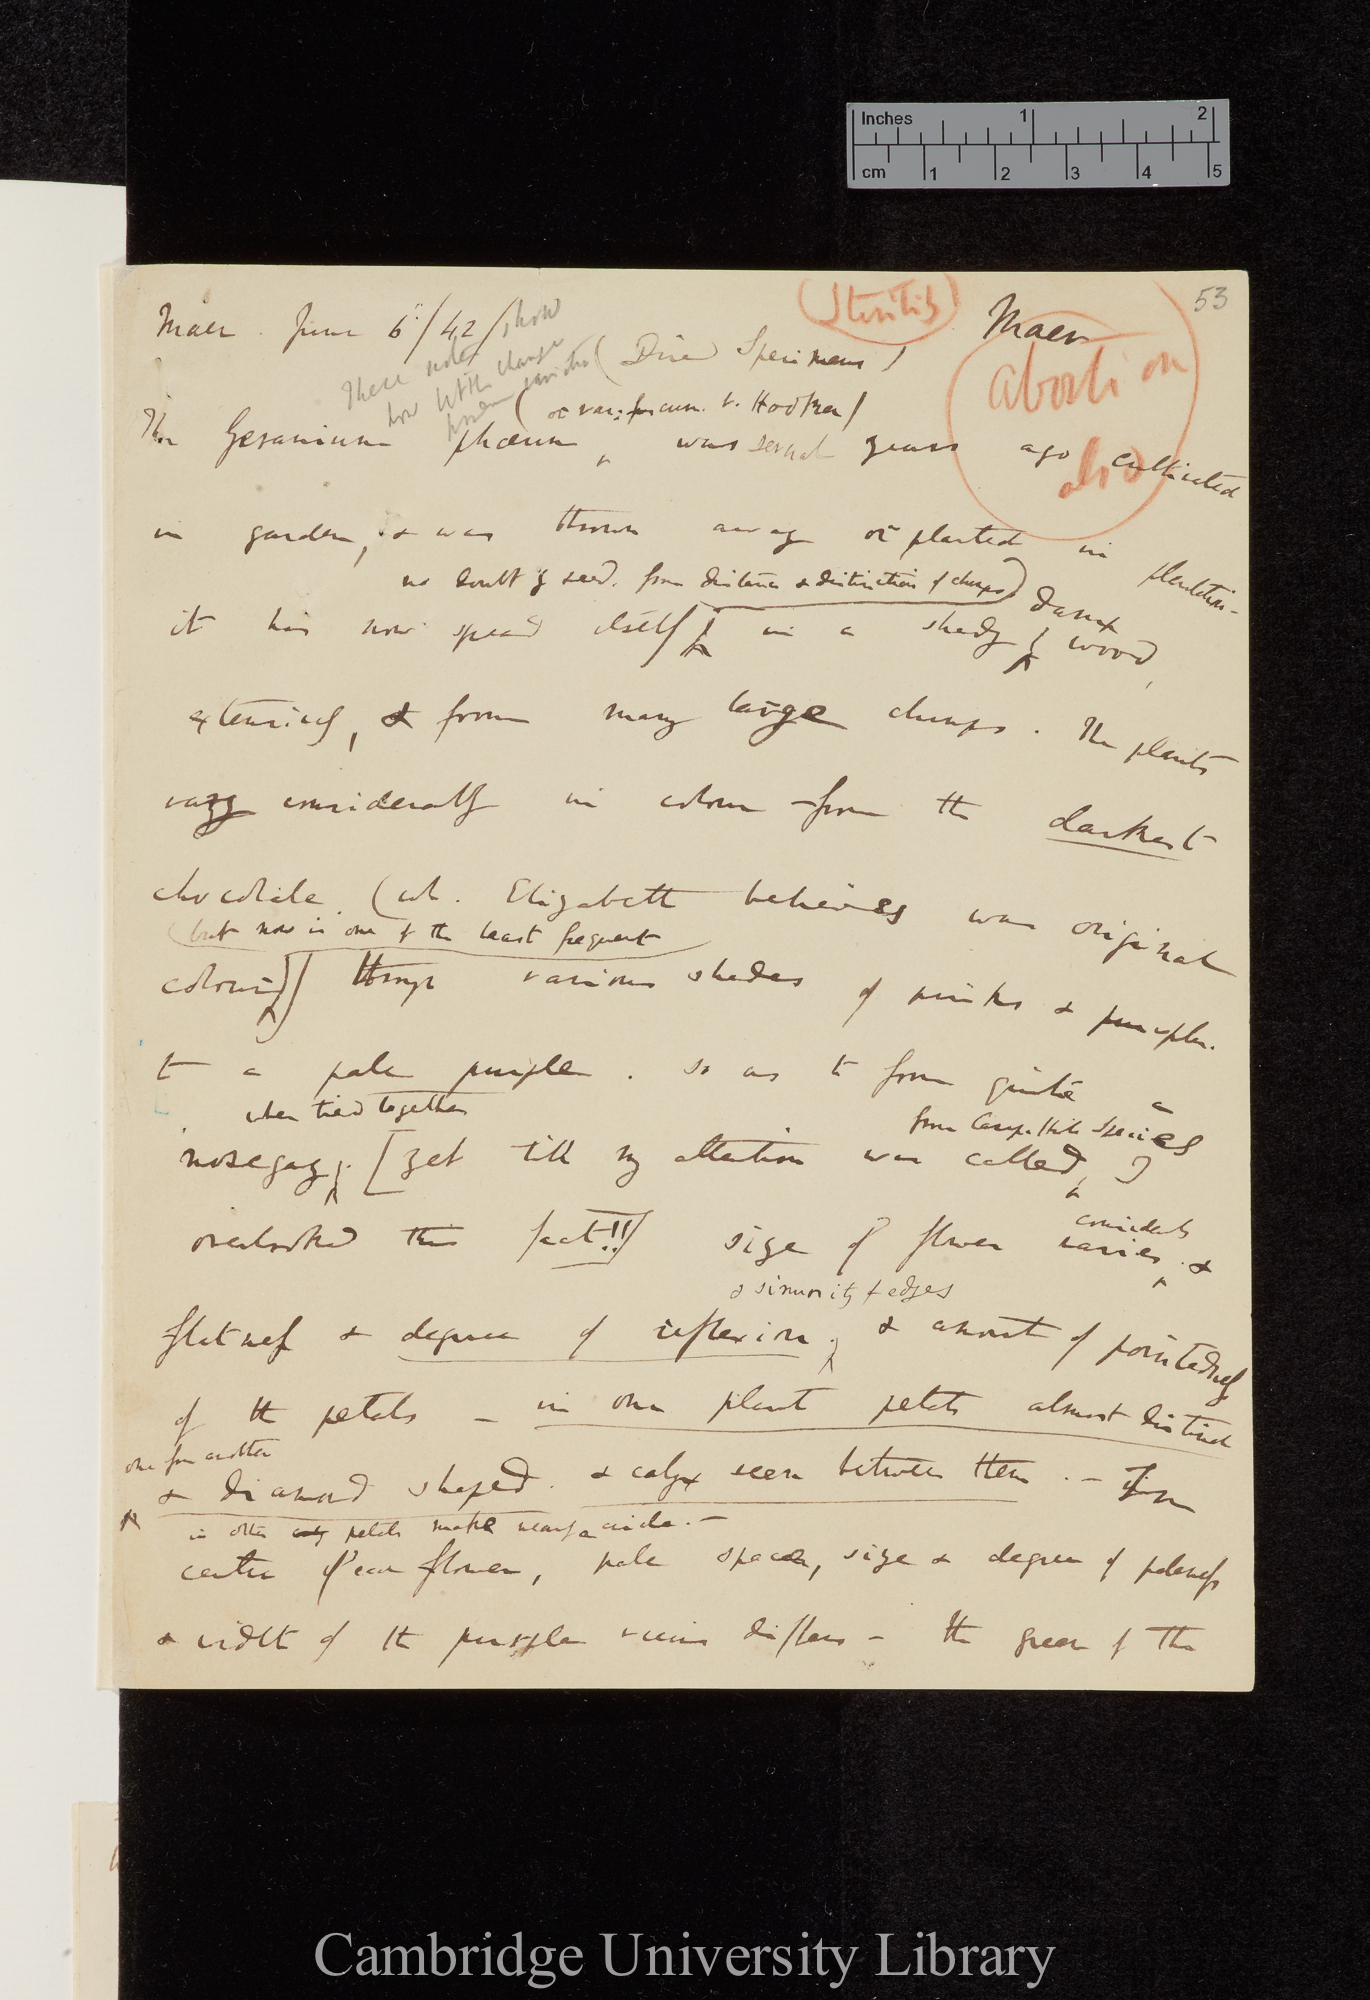 Inches 1 2
cm 1 2 3 4 5
53
Sterility
Maer
abortion
also
Maer. June 6"/42/
These notes show
how little change
(Dried Specimens)
(or var: fuscum. v. Hooker)
The Geranium phæum, was several years ago cultivated
in garden, & was thrown away or planted in plantation-
no doubt by seed. from distance & distinction of clumps)
it has now spread itself in a shady & damp wood,
extensively, & form many large clumps. The plants
vary considerably in colour from the darkest
chocolate (wh. Elizabeth believes was original
(but now is one of the least frequent
colour)) through various shades of pinks & purples.
to a pale purple. so as to form quite a
when tied together
nosegay; [yet till my attention was called, I
from Campanile Species
overlooked this fact!!] size of flower varies, &
considerably
& sinuosity of edges
flatness & degree of reflexion, & amount of pointedness
of the petals — in one plant petals almost distinct
one from another
& diamond shaped. & calyx seen between them. — From
in other petals make nearly a circle. —
centre of each flower, pale space, size & degree of paleness
& width of the purple veins differs — the green of the
Cambridge University Library